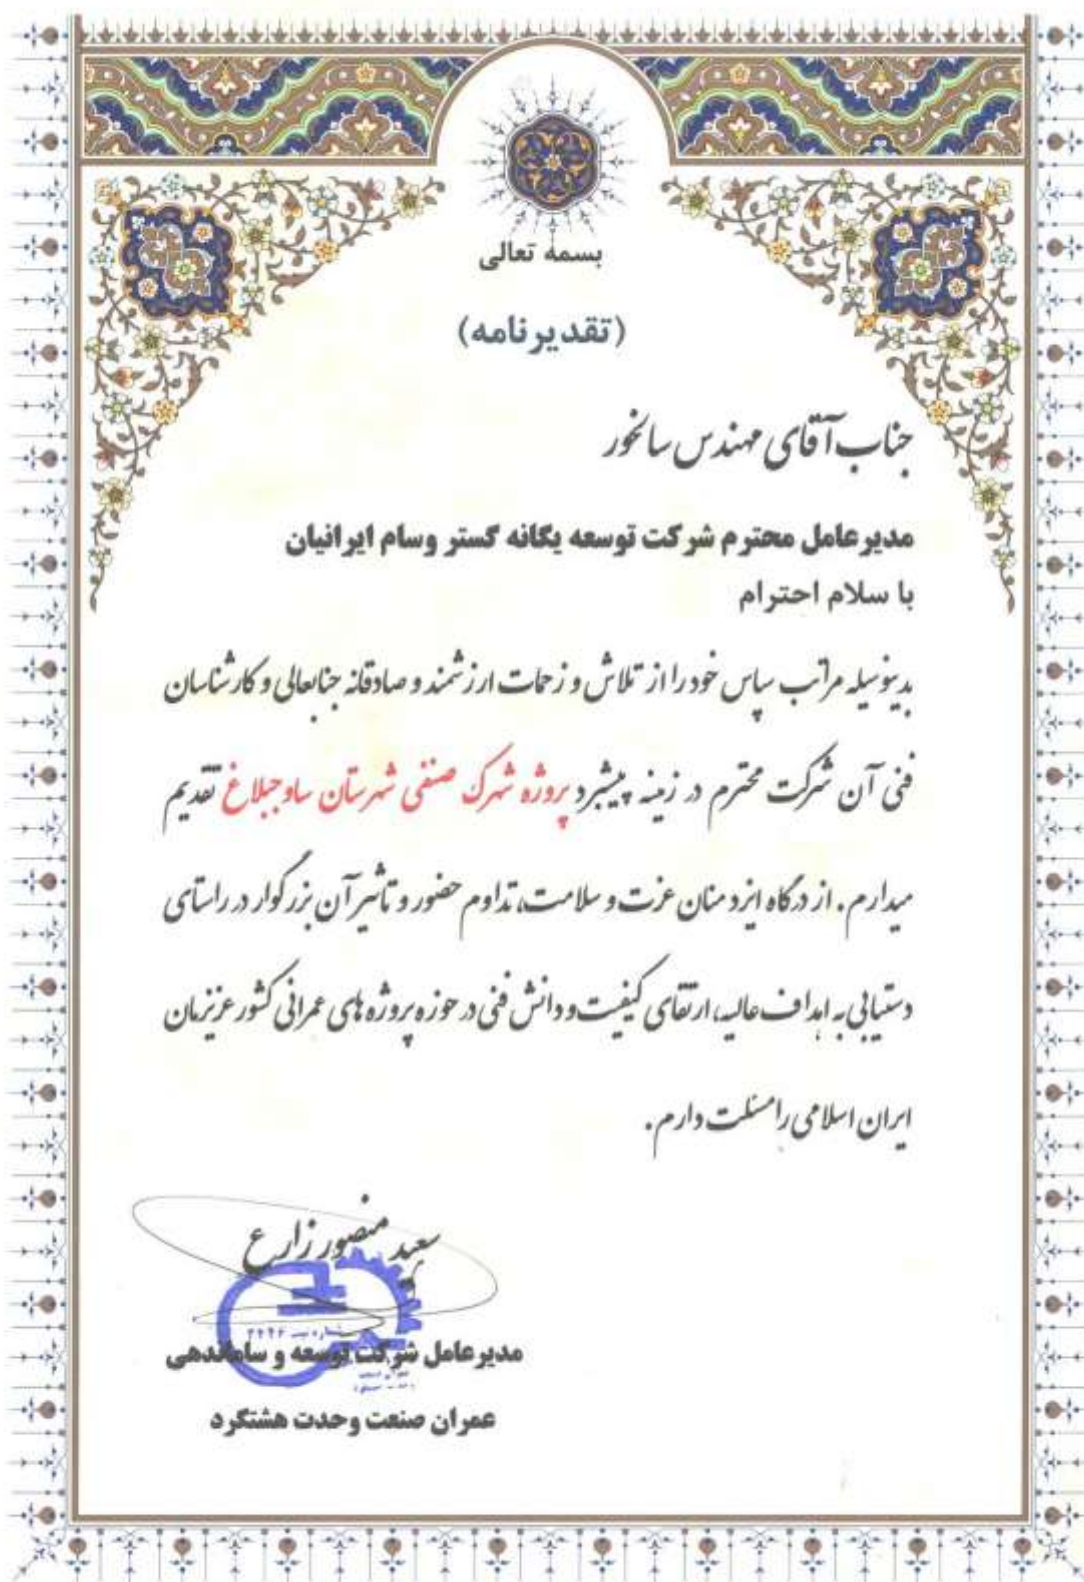 بسمه تعالی
(تقدیرنامه)
جناب آقای مهندس سالخور
مدیرعامل محترم شرکت توسعه یگانه گستر وسام ایرانیان
با سلام احترام
بدینوسیله مراتب سپاس خود را از تلاش و زحمات ارزشمند و صادقانه جنابعالی و کارشناسان
فنی آن شرکت محترم در زمینه پیشبرد پروژه شهرک صنفی شهرستان ساوجبلاغ تقدیم
میدارم. از درگاه ایزد منان عزت و سلامت، تداوم حضور و تاثیر آن بزرگوار در راستای
دستیابی به اهداف عالیه، ارتقای کیفیت و دانش فنی در حوزه پروژه های عمرانی کشور عزیزمان
ایران اسلامی را مسئلت دارم.
سعید منصور زارع
مدیرعامل شرکت توسعه و ساماندهی
عمران صنعت وحدت هشتگرد